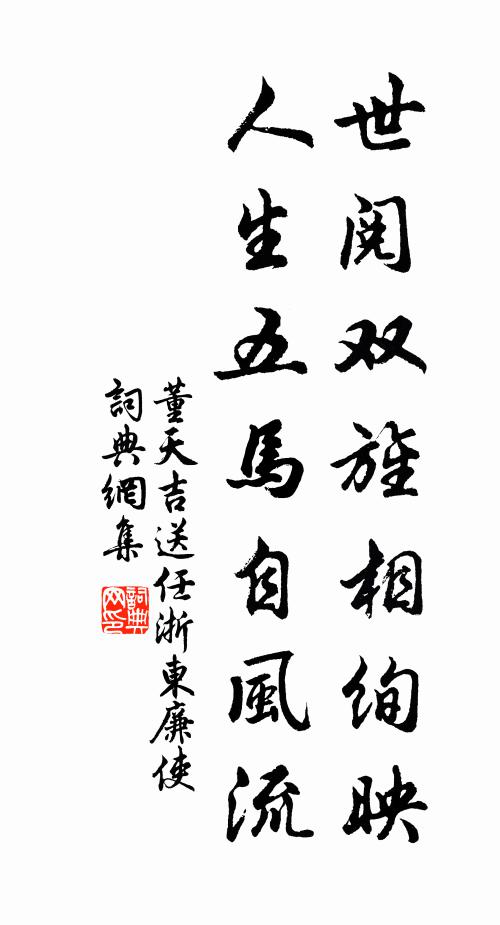 世阅双旌相绚映
人生五馬自風流
董天吉送任浙東廉使
詞典網集
詞典网印